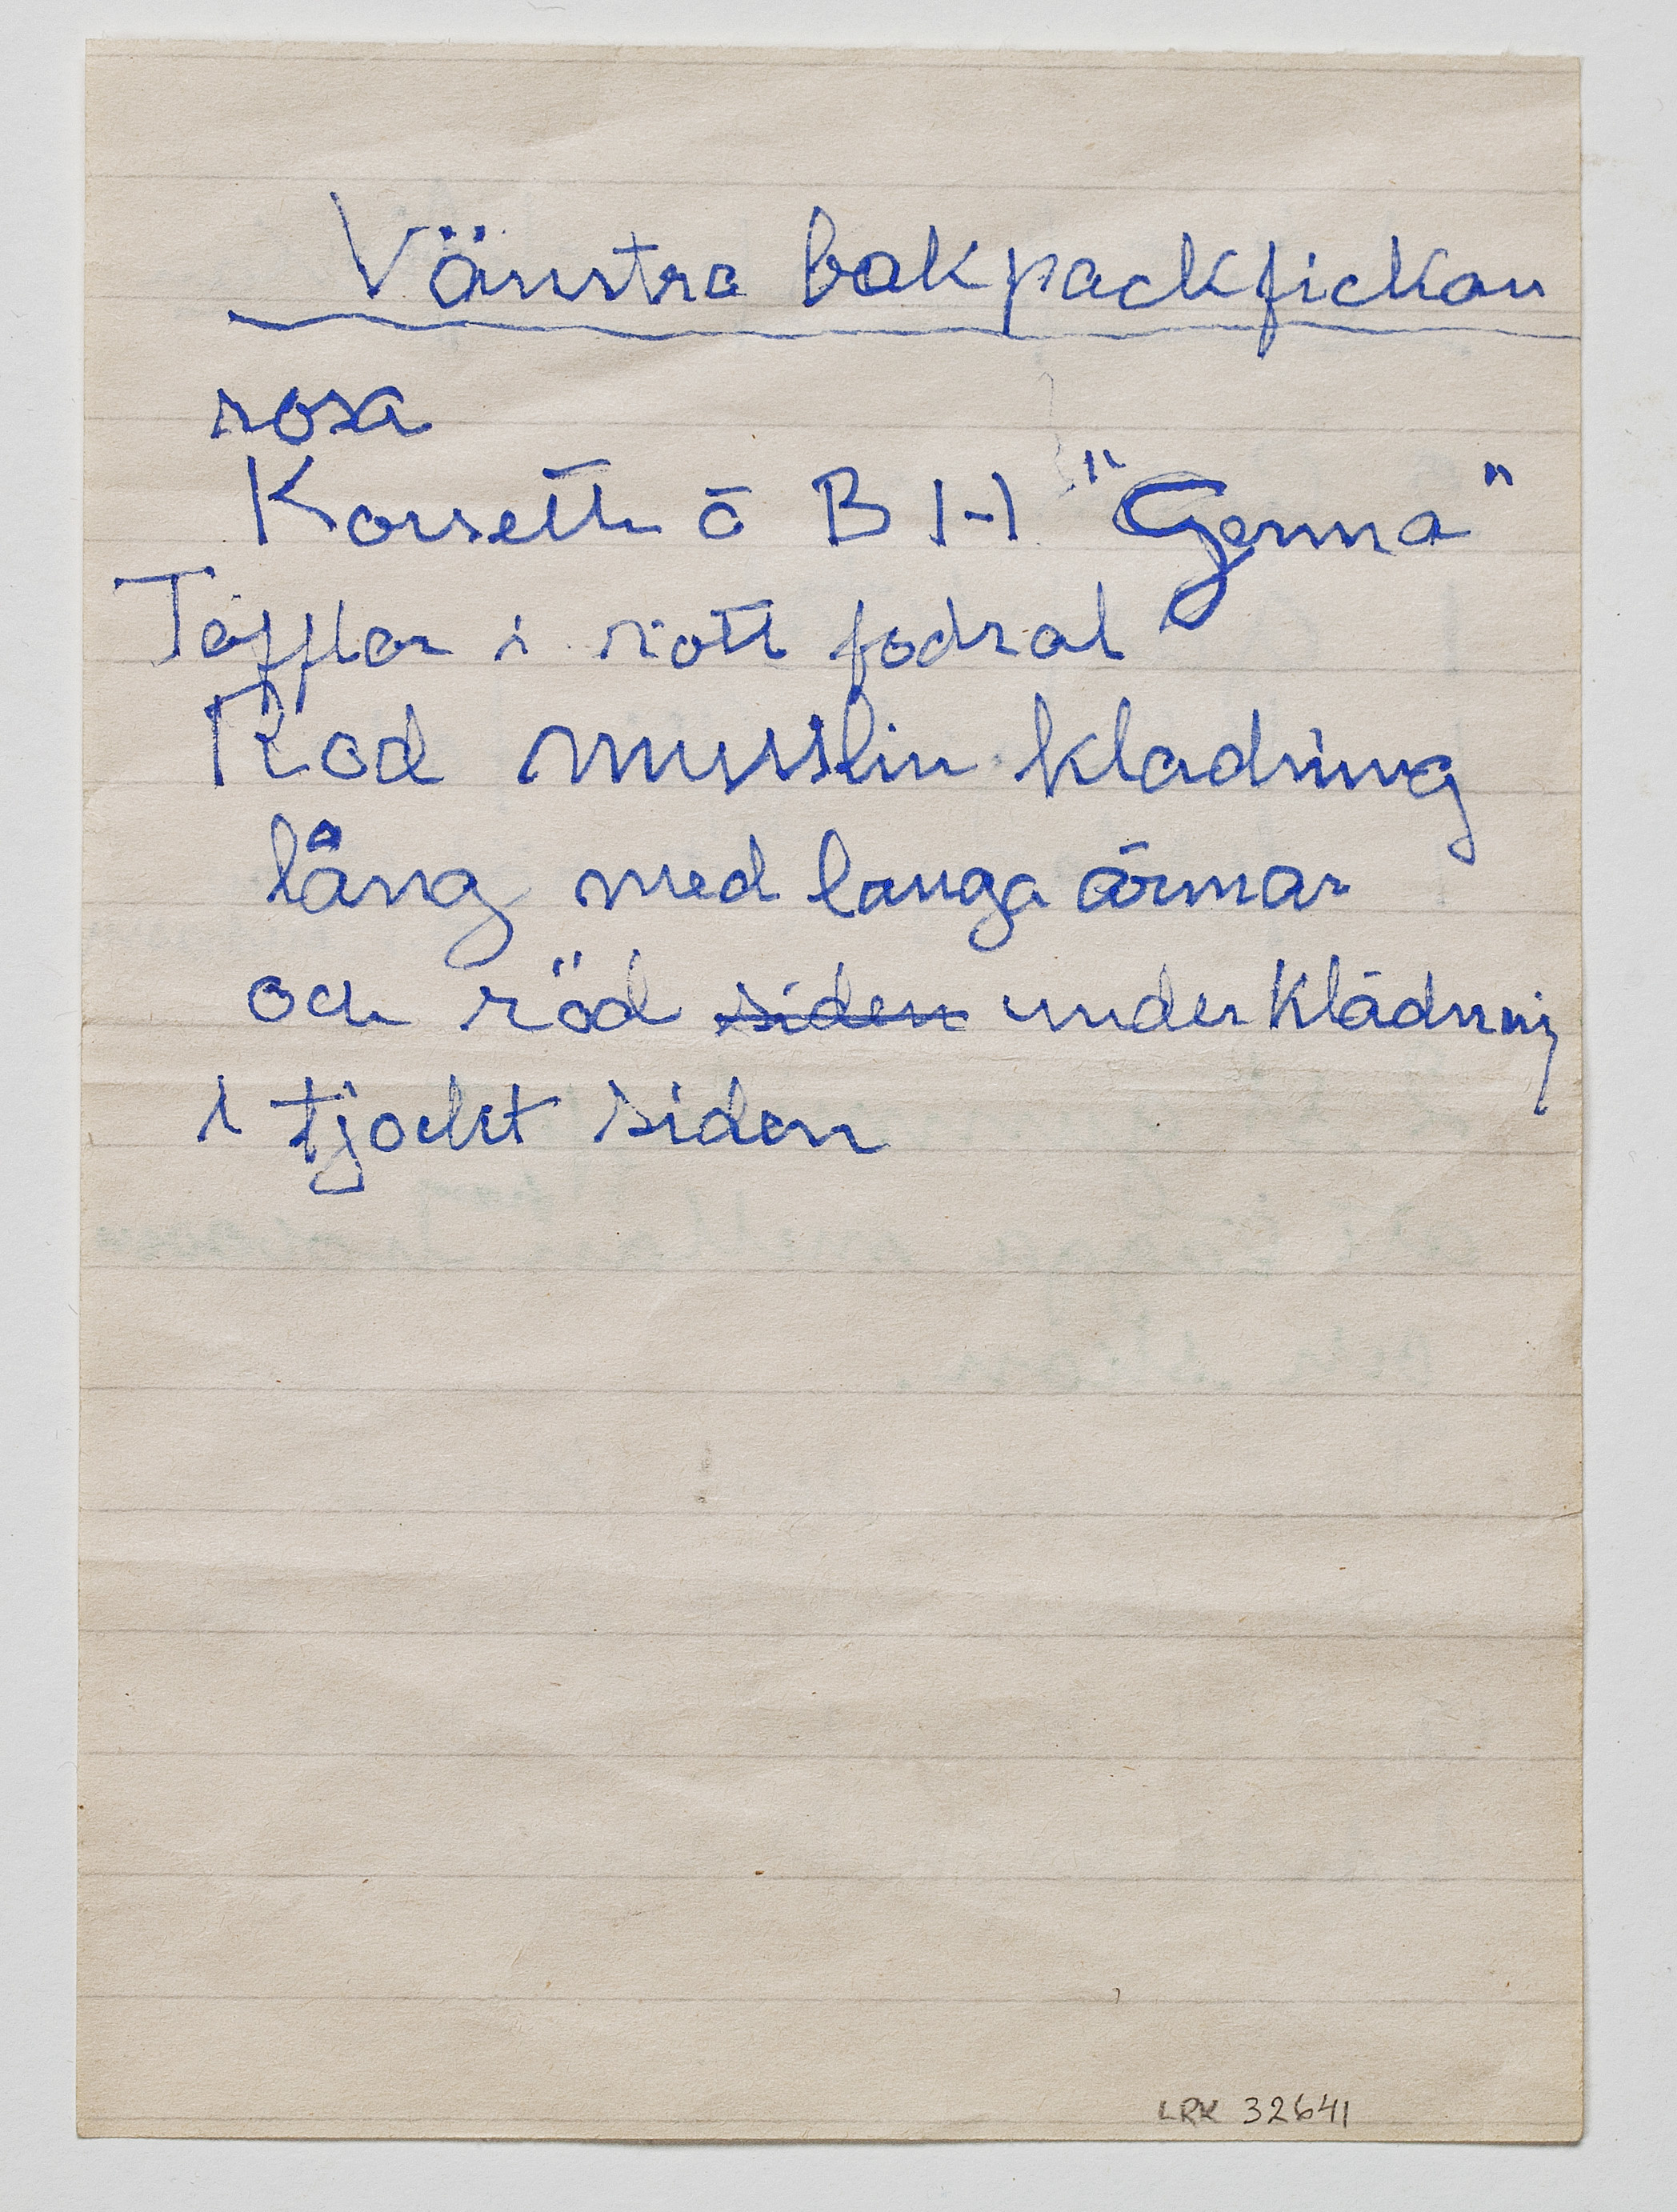 Vänstra bakpackfickan
rosa
Korsett o B H "Gemma"
Tofflor i rött fodral
Rod musslin kladning
lång med langa ärmar
och röd siden underklädning
i tjockt siden
LRK 32641